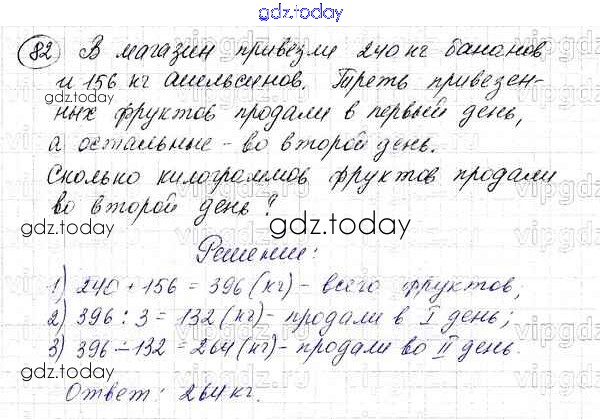 gdz.today
82 В магазин привезли 240 кг бананов
и 156 кг апельсинов. Треть привезен-
ных фруктов продали в первый день,
а остальные - во второй день.
Сколько килограммов фруктов продали
во второй день?
gdz.today
gdz.today
Решение:
1) 240 + 156 = 396 (кг) - всего фруктов;
2) 396 : 3 = 132 (кг) - продали в I день;
3) 396 - 132 = 264 (кг) - продали во II день.
gdz.today
gdz.today
Ответ: 264 кг.